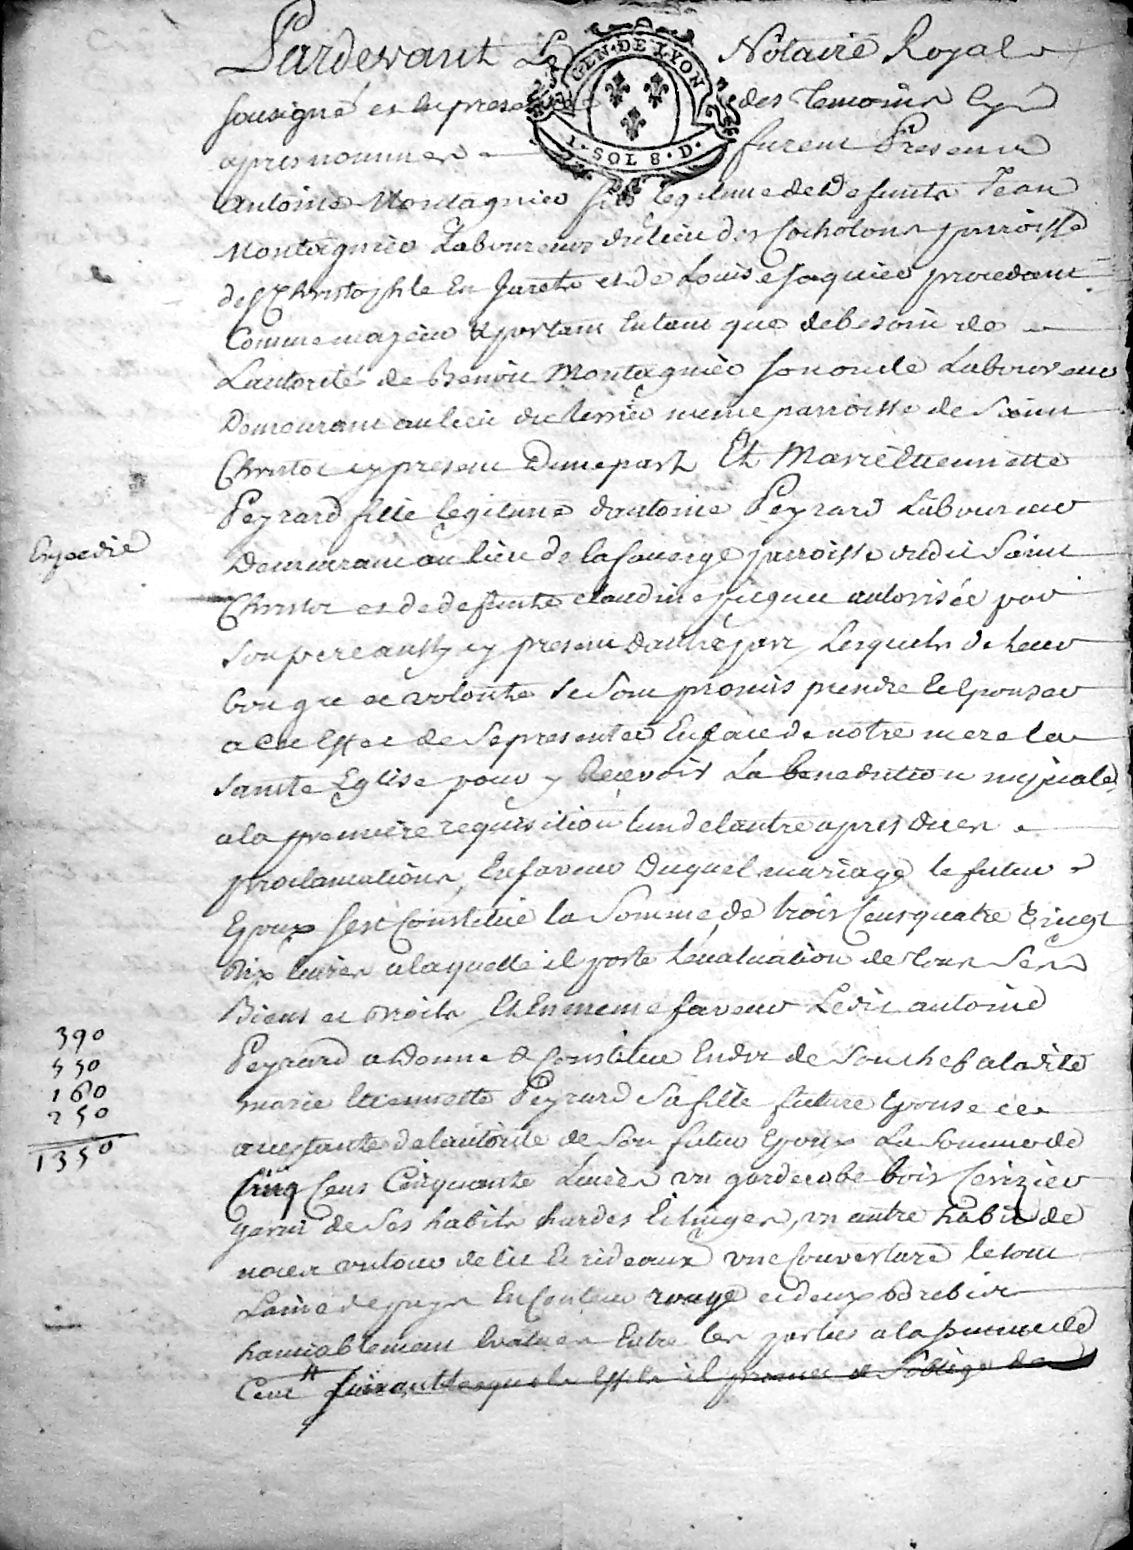 Pardevant Le Notaire Royal
GEN. DE LYON
1. SOL 8. D.
sousigné et en presence des temoins cy
apres nommes furent Presens
antoine Montagnier fils legitime de Defunts Jean
Montagnier Laboureur du lieu des Cocholons parroisse
de St Christophle En Jarets et de Louise Jaquier procedant
Comme majeur & portant Entant que de besoin de
Lautorité de Benoit Montagnier son oncle Laboureur
Demeurant au lieu du meme parroisse de Saint
Christoc cy present Dune part Et Marie Etiennette
Peyrard fille legitime dantoine Peyrard Laboureur
Expedié
Demeurant au lieu de la faverge parroisse dudit Saint
Christoc et de defunte claudine autorisée par
Son pere aussy cy present dautre part, Lesquels de leur
bon gré et volonté se sont promis prendre et Epouser
a cet Effet de se presenter En face de notre mere la
sainte Eglise pour y Recevoir La benediction nupciale
a la premiere requisition lun de lautre apres
proclamations, En faveur Duquel mariage le futur
Epoux sest Constitué la Somme de trois Cens quatre vingt
dix livres a laquelle il porte levaluation de tous Ses
Biens et droits Et En meme faveur Ledit antoine
390
550
160
250
1350
Peyrard a Donné & Constitué En dot de Son chef a ladite
marie Etiennette Peyrard Sa fille future Epouse
acceptante de lautorité de Son futur Epoux La somme de
Cinq Cens Cinquante Livres un garderobe bois Cerizier
garni de Ses habits hardes & linges, un autre habit de
noces un tour de lit & rideaux une Couverture le tout
Laine de pays En Couleur rouge et deux brebis
hamiablement Evalués Entre les parties a la somme de
Cent suivant lesquels Effets il promet & soblige de